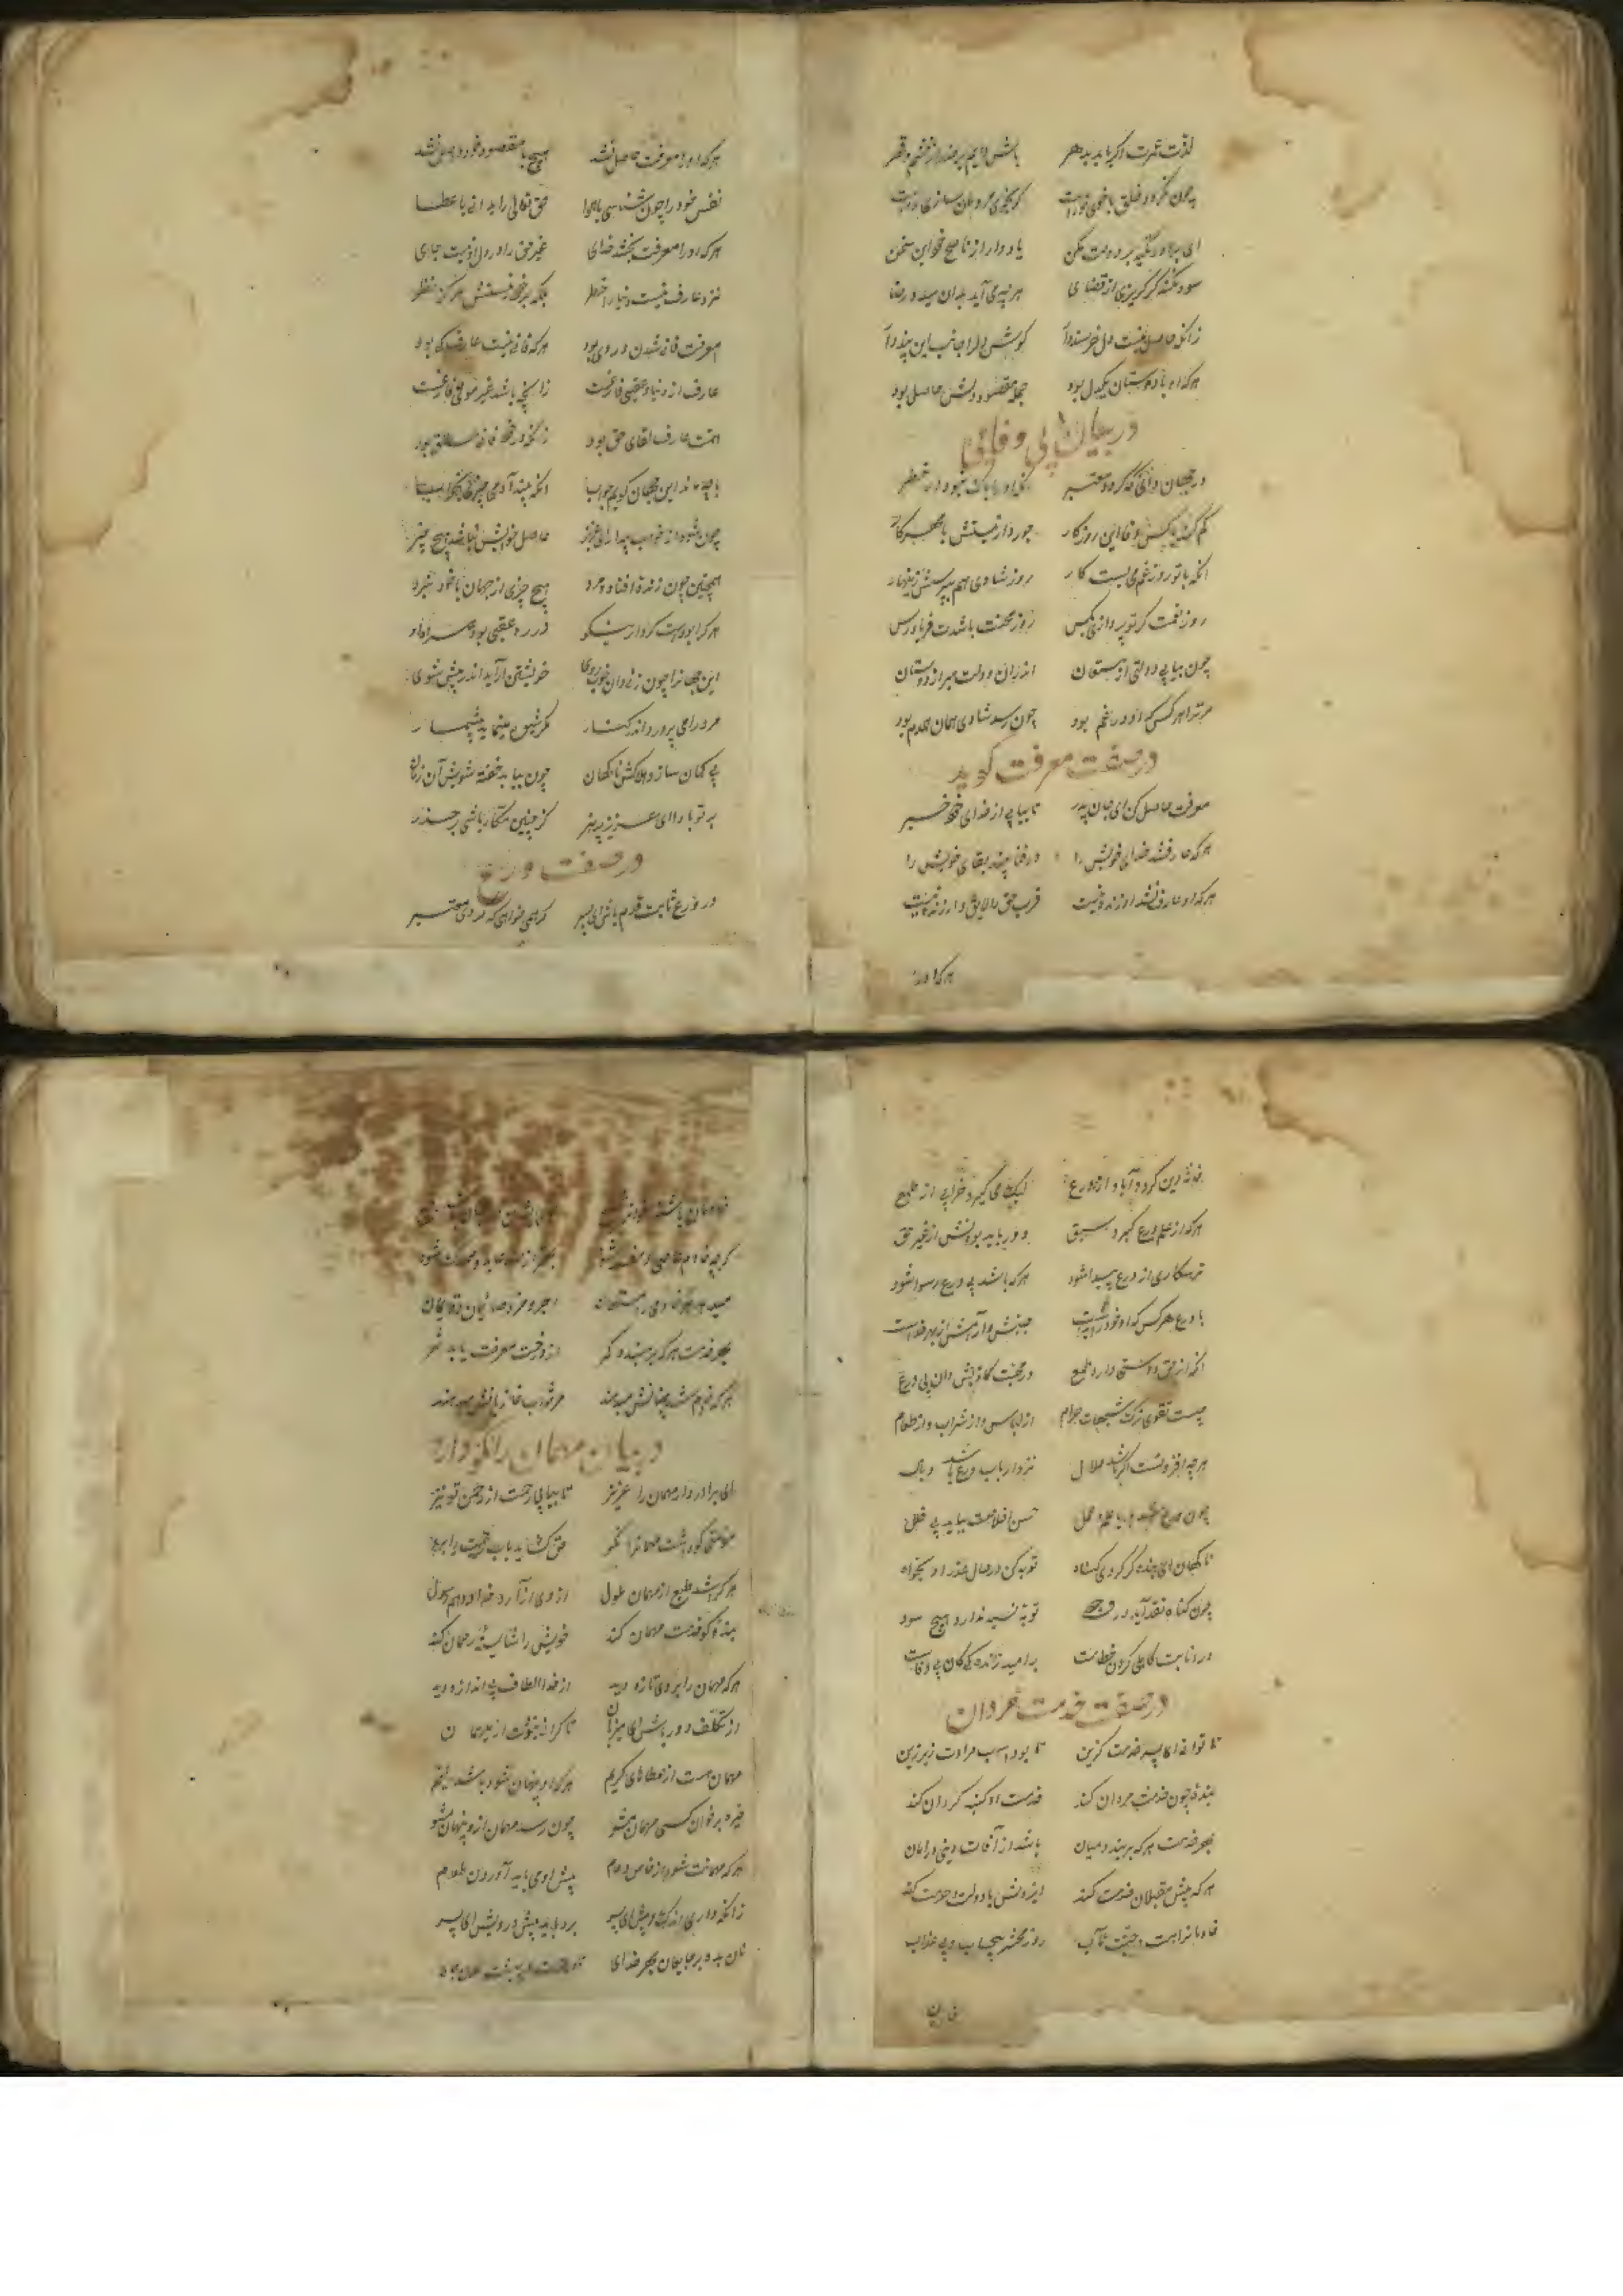 لذت عمرت اگر باید بدهر باش دایم بر حذر از خشم و قهر
چون نگردد خلق با خوی تو راست گر بخوی مردمان سازی رواست
ای برادر تکیه بر دولت مکن یاد دار از ناصح خود این سخن
سود نکند گر گریزی از قضا هرچه می آید بدان میده رضا
زانکه حاصل نیست دل خرسند دار گوش دل را جانب این پند دار
هر که او با دوستان یکدل بود جمله مقصود دلش حاصل بود
در بیان بی وفائی
در جهان دانی که گردد معتبر
کم کند با کس وفا این روزگار جور دارد نیستش با مهر کار
آنکه با تو روز غم می بست کار روز شادی هم بپرسش زینهار
روز نعمت گر تو پردازی بکس روز محنت باشدت فریادرس
چون بیابی دولتی از مستعان اندران دولت مبر از دوستان
مر ترا هر کس که او در غم بود چون رسد شادی همان همدم بود
در صفت معرفت گوید
معرفت حاصل کن ای جان پدر تا بیابی از خدای خود خبر
هر که عارف شد خدای خویش را در فنا بیند بقای خویش را
هر که او عارف نشد او زنده نیست قرب حق را لایق و ارزنده نیست
هر که او را
هر که او را معرفت حاصل نشد هیچ با مقصود خود واصل نشد
نفس خود را چون شناسی با هوا حق تعالی را بدانی با عطا
هر که او را معرفت بخشد خدای غیر حق را در دل او نیست جای
نزد عارف نیست دنیا را خطر بلکه بر خود نیستش هرگز نظر
معرفت فانی شدن در وی بود هر که فانی نیست عارف کی بود
عارف از دنیا و عقبی فارغست زانچه باشد غیر مولی فارغست
همت عارف لقای حق بود زانکه در خود فانی مطلق بود
با چه ماند این جهان گویم جواب آنکه بیند آدمی چیزی بخواب
چون شود از خواب بیدار ای عزیز حاصل خوابش نباشد هیچ چیز
همچنین چون زنده افتاد و مرد هیچ چیزی از جهان با خود نبرد
هر کرا بودست کردار نکو در ره عقبی بود همراه او
این جهان را چون زنی دان خوب روی خویشتن آراید اندر چشم شوی
مرد را می پرورد اندر کنار مکر و شیوه مینماید بیشمار
بی گمان سازد هلاکش ناگهان چون بیابد خفته شویش آن زمان
بر تو باد ای عزیز پرهنر کز چنین مکاره باشی بر حذر
در صفت ورع
در ورع ثابت قدم باش ای پسر گر همی خواهی که گردی معتبر
خانه دین گردد آباد از ورع لیک می گیرد خرابی از طمع
هر که از علم ورع گیرد سبق دور باید بودنش از غیر حق
ترسکاری از ورع پیدا شود هر که باشد بی ورع رسوا شود
با ورع هر کس که او خود را براست جنبش و آرامش از بهر خداست
آنکه از حق دوستی دارد طمع در محبت کاذبش دان بی ورع
چیست تقوی ترک شبهات حرام از لباس و از شراب و از طعام
هر چه افزونست اگر باشد حلال نزد ارباب ورع باشد وبال
چون ورع شد یار با علم و عمل حسن اخلاصت بیاید بی خلل
ناگهان ای بنده گر کردی گناه توبه کن در حال عذر او بخواه
چون گناه نقد آید در وجود توبه نسیه ندارد هیچ سود
در انابت کاهلی کردن خطاست بر امید زندگی کان بی وفاست
در صفت خدمت مردان
تا توانی ای پسر خدمت گزین تا بود اسب مرادت زیر زین
بنده چون خدمت مردان کند خدمت او گنبد گردان کند
بهر خدمت هر که بر بندد میان باشد از آفات دنیی در امان
هر که پیش مقبلان خدمت کند ایزدش با دولت و حرمت کند
خادمانرا هست جنت مآب روز محشر بی حساب و بی عذاب
خادمان
گرچه خادم عاصی و مفسد شود
میدهد هر خادمی را مستعان اجر و مزد صائمان و قائمان
بهر خدمت هر که بر بندد کمر از درخت معرفت یابد ثمر
هر که خادم شد جنانش میدهند مر ثواب غازیانش میدهند
در بیان مهمان را نکو دارد
ای برادر دار مهمان را عزیز تا بیابی رحمت از رحمن تو نیز
مؤمنی کو داشت مهمانرا نکو حق گشاید باب رحمت را برو
هر کرا شد طبع از مهمان ملول از وی آزارد خدا و هم رسول
بنده کو خدمت مهمان کند خویش را شایسته رحمان کند
هر که مهمان را بروی تازه دید از خدا الطاف بی اندازه دید
از تکلف دور باش ای میزبان تا گرانی نبودت از میهمان
مهمان هست از عطاهای کریم هر که زو پنهان شود باشد لئیم
خیره بر خوان کسی مهمان مشو چون رسد مهمان ازو پنهان مشو
هر که مهمانت شود از خاص و عام پیش او می باید آوردن طعام
زانکه داری اندک و بیش ای پسر برد باید پیش درویش ای پسر
نان بده بر جایعان بهر خدای